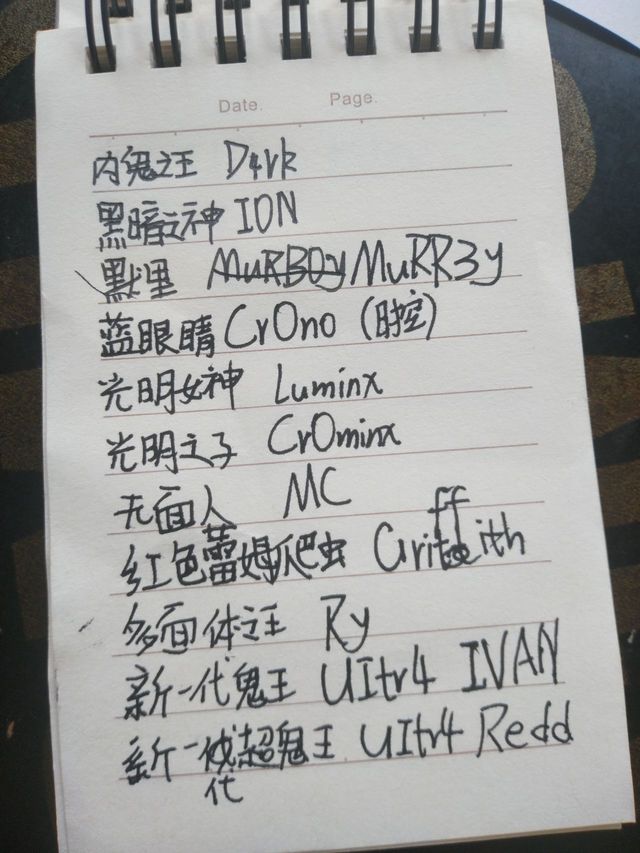 Date. Page.
内鬼之王 D4rk
黑暗之神 ION
默里 MuRBOy MuRR3y
蓝眼睛 CrOno (时空)
光明女神 Luminx
光明之子 CrOminx
无面人 MC
红色蕾姆爬虫 Griffith
多面体之王 Ry
新一代鬼王 UItr4 IVAN
新一代超鬼王 UItr4 Redd